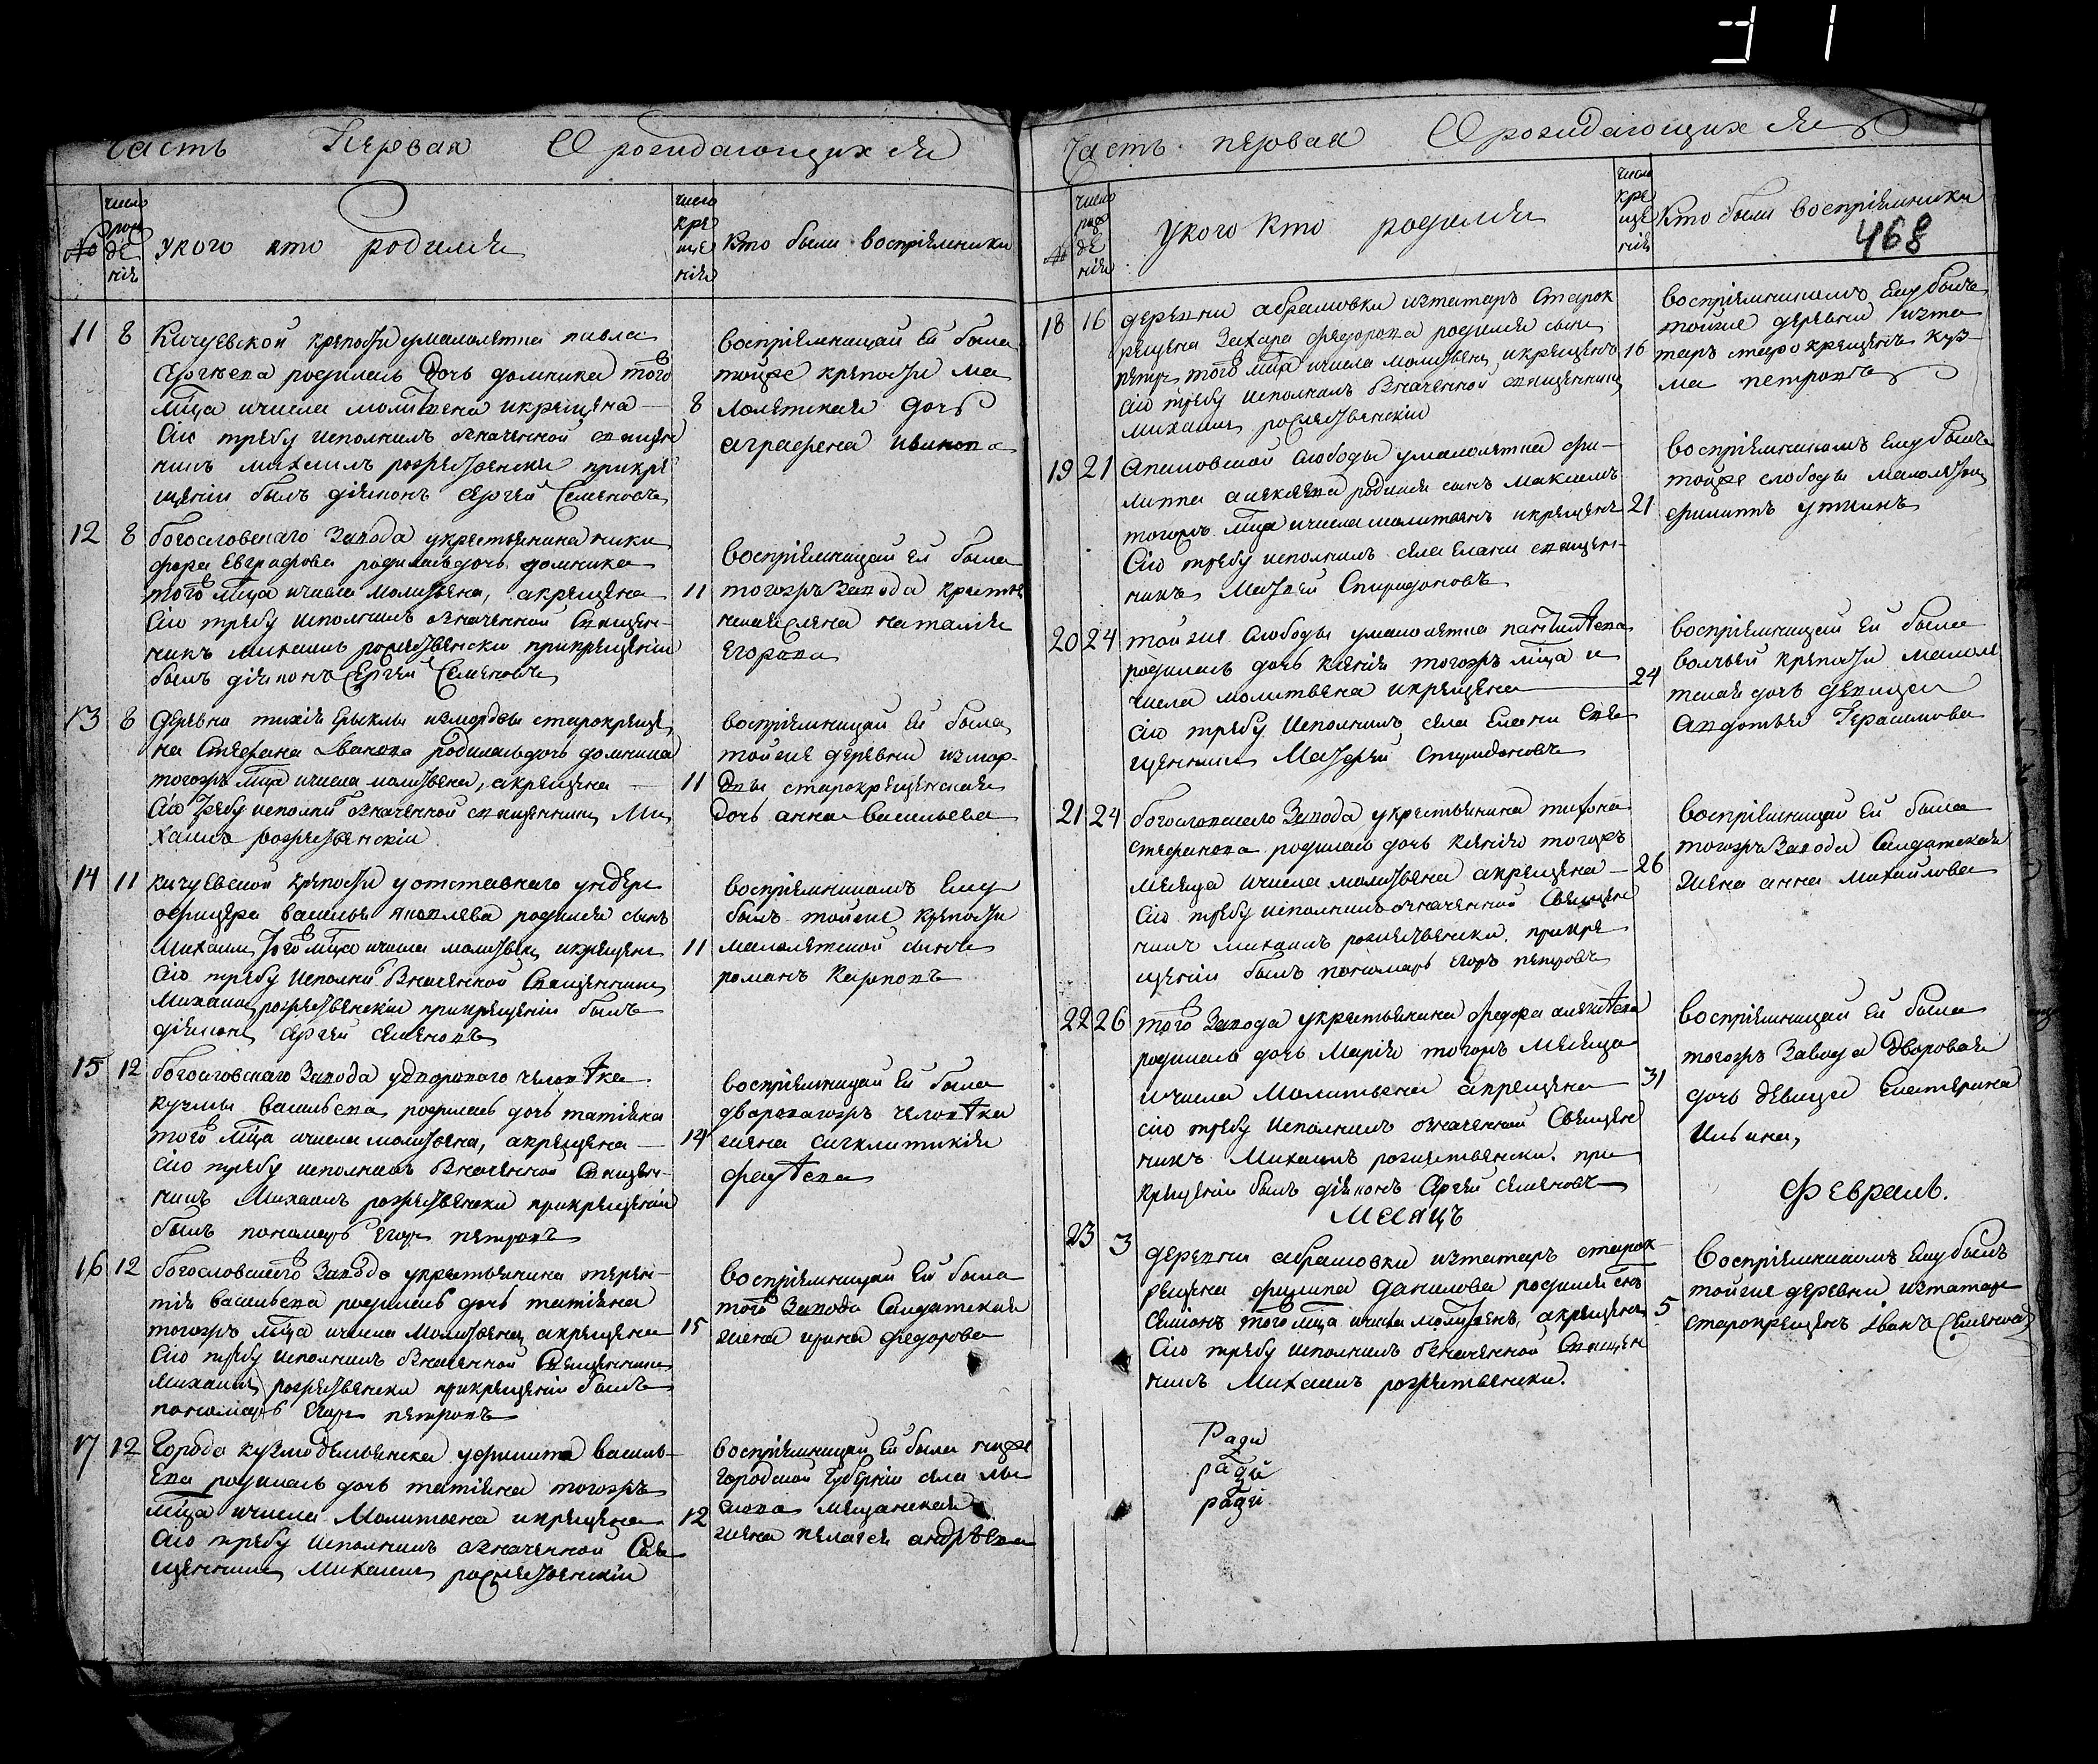 Часть Первая О рождающихся
№
число рож де нія
у кого кто родился
число кре ще нія
кто были воспріемники
11 8 Кичуевской крепости умалолетна павла
Сергѣева родилась дочь домника того
мца ичисла молитвена икрещена 8
Сію требу исполнилъ означенной священ
никъ михаилъ рождественски прикре
щеніи былъ діяконъ Сергей Семеновъ
воспріемницай ей была
тойже крепости ма
лолетская дочь
аграфена иванова
12 8 богословскаго завода укрестьянина ники
фора Евграфова родиласьдочь домника
того мца ичисла молитвена, акрещена 11
Сію требу исполнилъ означенной Священ-
никъ михаилъ рождественски прикрещеніи
былъ діяконъ Сергей Семеновъ
воспріемницай ей была
тогожъ завода крестья
нина жена наталія
Егорова
13 8 деревни тихія Ерыклы измордвы старокреще
на Стефана Іванова родиласьдочь домника
тогожъ мца ичисла молитвена, акрещена 11
Сію требу исполни означенной священникъ Ми
хаилъ рождественскіи
воспріемницай ей была
тойже деревни измор-
двы старокрещенская
дочь анна васильева
14 11 кичуевской крепости уотставнаго ундеръ
офицера василья яковлева родился сынъ
Михаилъ того мца ичисла молитвенъ икрещенъ 11
Сію требу исполни означенной Священникъ
Михаилъ рождественскіи прикрещеніи былъ
діяконъ Сергей Семеновъ
воспріемникомъ Ему
былъ тойже крепости
малолетской сынъ
романъ карповъ
15 12 богословскаго завода удворового человѣка
кузмы васильева родилась дочь татіяна
того мца ичисла молитвена, акрещена 14
Сію требу исполнилъ означенной Священ-
никъ Михаилъ рождественски прикрещеніи
былъ пономарь Егоръ петровъ
воспріемницай ей была
дворовагожъ человѣка
жена сигклитикія
фадѣева
16 12 богословского завода укрестьянина терен-
тія васильева родилась дочь татіяна
тогожъ мца ичисла молитвена, акрещена 15
Сію требу исполнилъ означенной Священникъ
Михаилъ рождественски прикрещеніи былъ
пономарь Егоръ петровъ
воспріемницай ей была
того завода Салдатская
жена ирина федорова
17 12 Города кузмодемьянска уфилипа василь-
Ева родилась дочь татіяна тогожъ
мца ичисла Молитвена икрещена 12
Сію требу исполнилъ означенной Свя
щенникъ Михаилъ рождественскіи
воспріемницай ей была ниже
городской Губерніи села лы
скова мещанская
жена пелагея андрѣева
Часть первая О рождающихся
№
число рож де нія
укого кто родился
число кре ще нія
Кто были воспріемники
468
18 16 деревни абрамовки изтатаръ старок
рещена Захара федорова родился сынъ
петръ того мца ичисла молитвенъ икрещенъ 16
Сію требу исполнилъ означенной священникъ
михаилъ рождественскіи
воспріемникомъ Ему былъ
тойже деревни изта
таръ старокрещенъ куз-
ма петровъ
19 21 слободы умалолетна фи-
липпа алексеева родился сынъ Максимъ
тогожъ мца ичисла молитвенъ икрещенъ 21
Сію требу исполнилъ села Елани священ-
никъ Матвей Спиридоновъ
воспріемникомъ Ему былъ
тойже слободы малолетн
филиппъ уткинъ
20 24 той же слободы умалолетна
родилась дочь ксенія тогожъ мца и
числа молитвена икрещена 24
Сію требу исполнилъ села Елани Свя
щенникъ Матфей Спиридоновъ
воспріемницай ей была
волчьей крепости малоле
тная дочь девица
Авдотья Герасимова
21 24 богословскаго завода укрестьянина тихона
стефанова родилась дочь ксенія тогожъ
месяца ичисла молитвена акрещена 26
Сію требу исполнилъ означенной Священ
никъ михаилъ рождественски. прикре
щеніи былъ пономарь Егоръ петровъ
воспріемницай ей была
тогожъ Завода Салдатская
жена анна михайлова
22 26 того завода укрестьянина федора алексѣева
родилась дочь Марія тогожъ месяца
ичисла молитвена акрещена 31
сію требу исполнилъ означенной Священ
никъ Михаилъ рождественски. при
крещеніи былъ діяконъ Сергей Семеновъ
воспріемницай ей была
тогожъ завода дворовая
дочь девица Екатерина
Ильина,
месяцъ Февраль.
23 3 деревни абрамовки изтатаръ старок-
рещена филипа данилова родился снъ
Семіонъ того мца ичисла молитвенъ, акрещенъ 5
Сію требу исполнилъ означенной Священ
никъ Михаилъ рождественски.
Воспріемникомъ Ему былъ
тойже деревни изтатаръ
старокрещенъ Іванъ Семеновъ